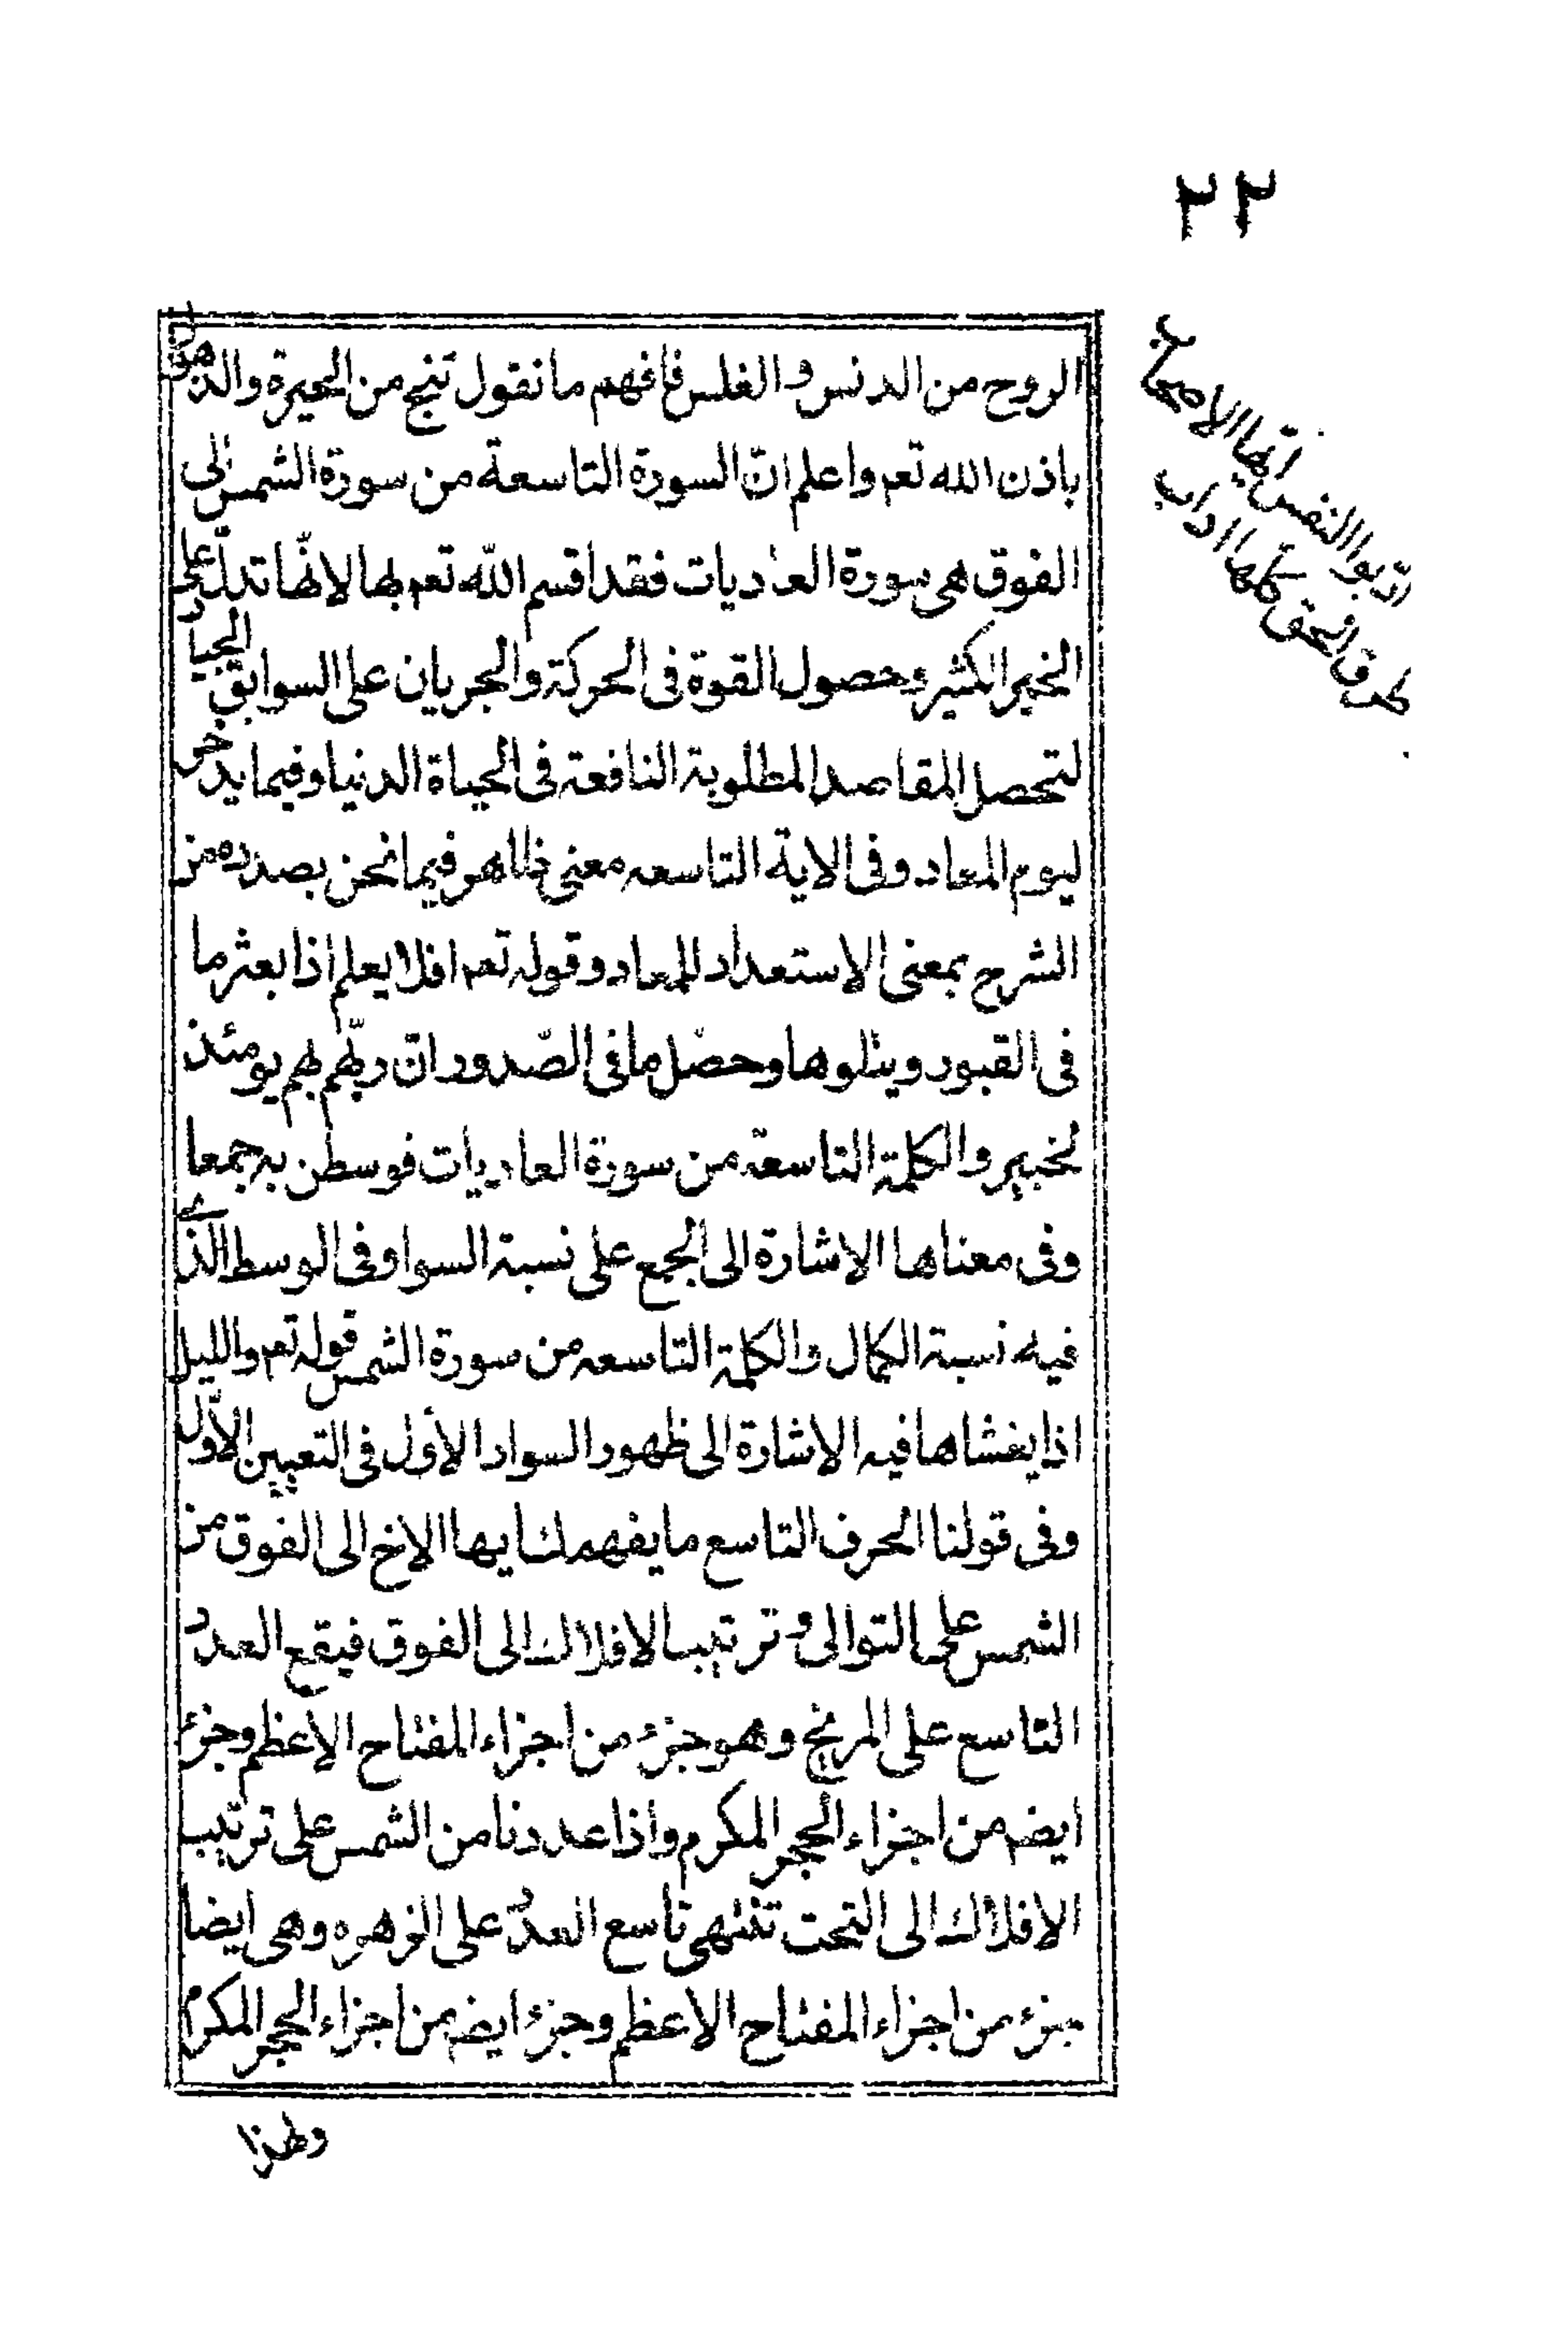 ٢٢
ادّبوا النفس ايّها الاصحاب
طرق العشق كلها اداب
الروح من الدنس والغلس فافهم ما نقول تنج من الحيرة والدهول
باذن الله تعم واعلم انّ السورة التاسعة من سورة الشمس الى
الفوق هى سورة العاديات فقد اقسم اللّه تعم بها لانّها تدلّ على
الخير الكثير وحصول القوة فى الحركة والجريان على السوابق الجياد
لتحصل المقاصد المطلوبة النافعة فى الحياة الدنيا وفيما يدخر
ليوم المعاد وفى الاية التاسعه معنى ظاهر فيما نحن بصدده من
الشرح بمعنى الاستعداد للمعاد وقوله تعم افلا يعلم اذا بعثر ما
فى القبور ويتلوها وحصّل ما فى الصّدور انّ ربّهم بهم يومئذ
لخبير والكلمة التاسعة من سورة العاديات فوسطن به جمعا
وفى معناها الاشارة الى الجمع على نسبة السوا وفى الوسط الذے
فيه نسبة الكمال والكلمة التاسعه من سورة الشمس قوله تعم والليل
اذا يغشاها فيه الاشارة الى ظهور السواد الأول فى التعيين الاوّل
وفى قولنا الحرف التاسع ما يفهمك ايها الاخ الى الفوق من
الشمس على التوالى و ترتيب الافلاك الى الفوق فيقع العدد
التاسع على المريخ وهو جزء من اجزاء المفتاح الاعظم وجزء
ايضم من اجزاء الحجر المكرم واذا عددنا من الشمس على ترتيب
الافلاك الى التحت تنتهى تاسع العدد على الزهره وهى ايضا
جزء من اجزاء المفتاح الاعظم وجزء ايضم من اجزاء الحجر المكرم
ولهذا